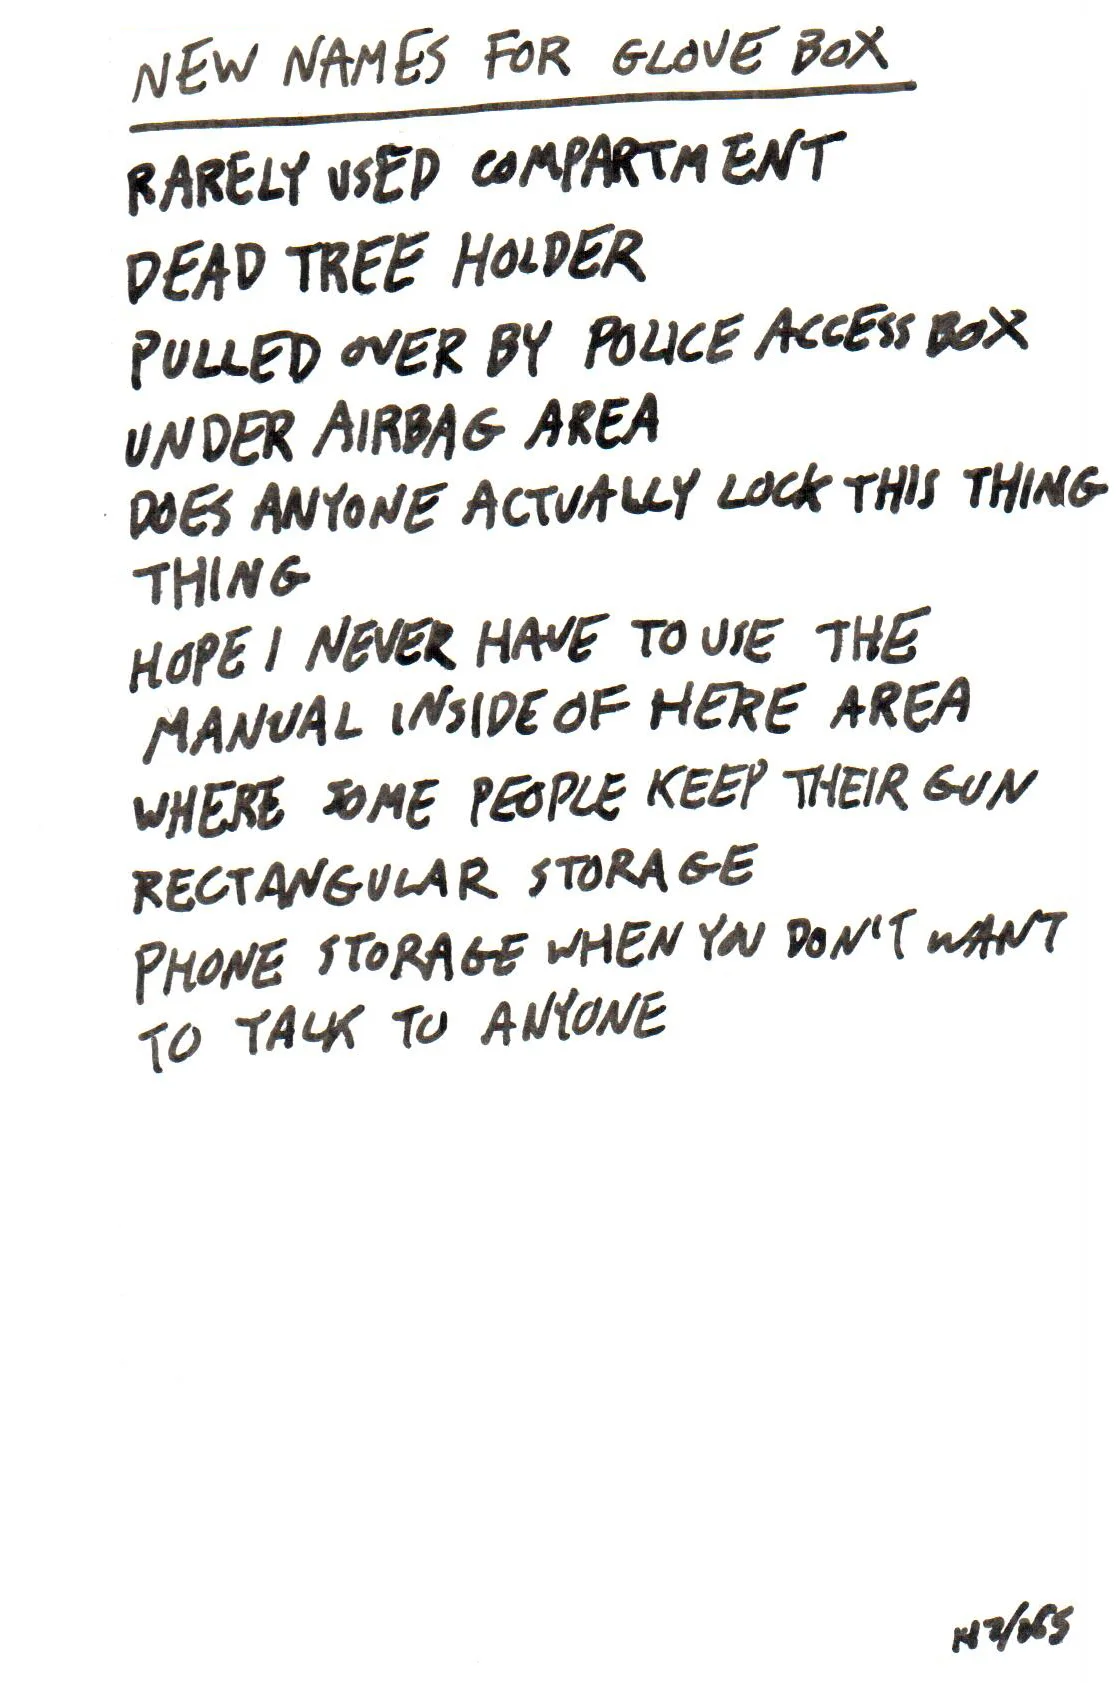 NEW NAMES FOR GLOVE BOX
RARELY USED COMPARTMENT
DEAD TREE HOLDER
PULLED OVER BY POLICE ACCESS BOX
UNDER AIRBAG AREA
DOES ANYONE ACTUALLY LOCK THIS THING
THING
HOPE I NEVER HAVE TO USE THE
MANUAL INSIDE OF HERE AREA
WHERE SOME PEOPLE KEEP THEIR GUN
RECTANGULAR STORAGE
PHONE STORAGE WHEN YOU DON'T WANT
TO TALK TO ANYONE